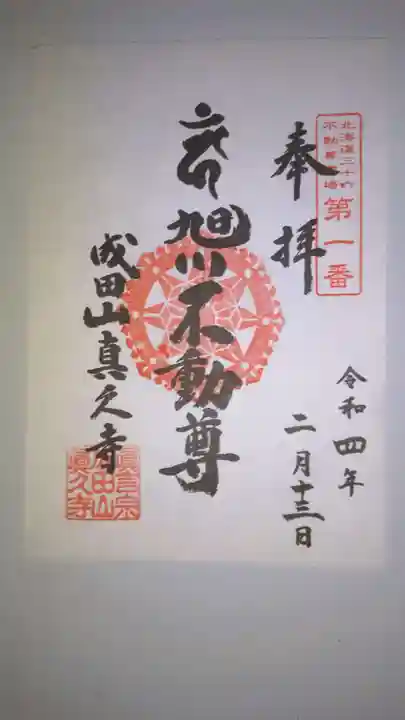 北海道三十六
不動尊霊場
第一番
奉拝
令和四年
二月十三日
旭川不動尊
成田山真久寺
真言宗
成田山
眞久寺